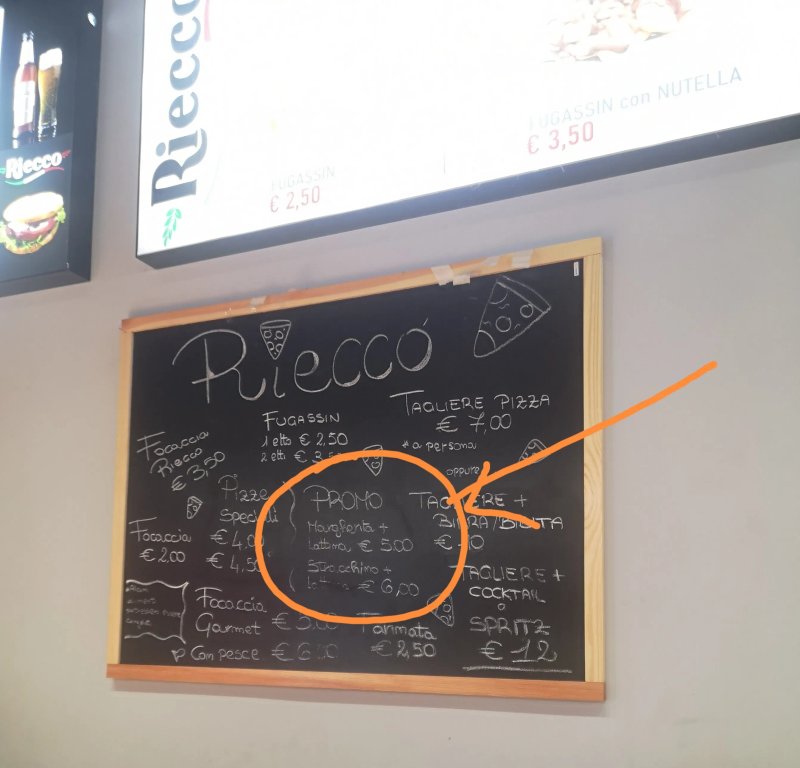 Riecco
Riecco
FUGASSIN
€ 2,50
FUGASSIN con NUTELLA
€ 3,50
RIECCO
FOCACCIA
RIECCO
€ 3,50
FUGASSIN
1 etto € 2,50
2 etti € 3,50
TAGLIERE PIZZA
€ 7,00
* a persona
oppure
Pizze
Speciali
€ 4,00
€ 4,50
Focaccia
€ 2,00
PROMO
Margherita +
lattina € 5,00
Stracchino +
lattina € 6,00
TAGLIERE +
BIRRA/BIBITA
TAGLIERE +
COCKTAIL
o
SPRITZ
€ 12
Focaccia
Gourmet
Con pesce
Farinata
€ 2,50